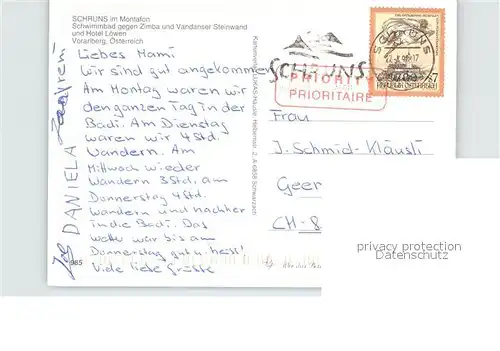 SCHRUNS im Montafon
Schwimmbad gegen Zimba und Vandanser Steinwand
und Hotel Löwen
Vorarlberg, Österreich
Liebes Mami
Wir sind gut angekommen
Am Montag waren wir
den ganzen Tag in der
Badi. Am Dienstag
waren wir 4 Std.
Wandern. Am
Mittwoch wieder
Wandern 3 Std. am
Donnerstag 4 Std.
Wandern und nachher
in die Badi. Das
war bis am
Donnerstag gut u. heiss!
Viele liebe Grüsse
DANIELA
985
SCHRUNS
PRIORITY
PRIORITAIRE
SCHRUNS
S7
REPUBLIK ÖSTERREICH
Frau
J. Schmid-Kläusli
Geer
CH-8
privacy protection
Datenschutz